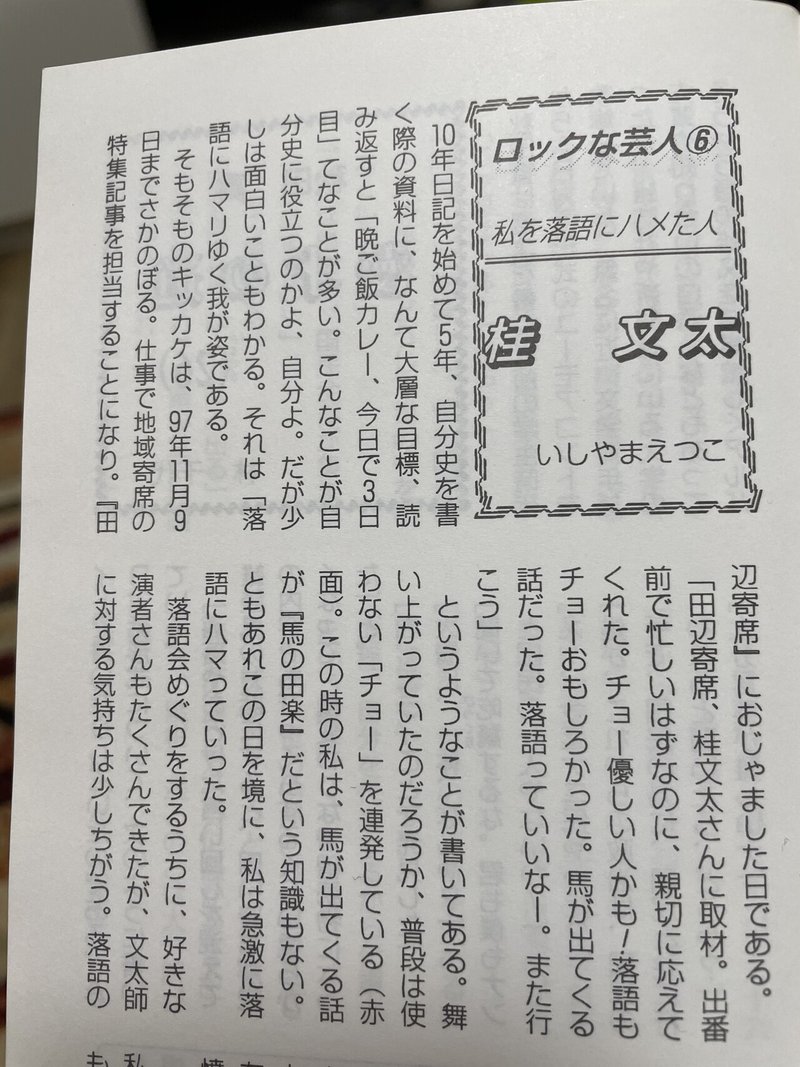 ロックな芸人⑥
私を落語にハメた人
桂 文太
いしやまえつこ
10年日記を始めて5年、自分史を書
く際の資料に、なんて大層な目標、読
み返すと「晩ご飯カレー、今日で3日
目」てなことが多い。こんなことが自
分史に役立つのかよ、自分よ。だが少
しは面白いこともわかる。それは「落
語にハマリゆく我が姿である。
そもそものキッカケは、97年11月9
日までさかのぼる。仕事で地域寄席の
特集記事を担当することになり。『田
辺寄席』におじゃました日である。
「田辺寄席、桂文太さんに取材。出番
前で忙しいはずなのに、親切に応えて
くれた。チョー優しい人かも！落語も
チョーおもしろかった。馬が出てくる
話だった。落語っていいなー。また行
こう」
というようなことが書いてある。舞
い上がっていたのだろうか、普段は使
わない「チョー」を連発している（赤
面）。この時の私は、馬が出てくる話
が『馬の田楽』だという知識もない。
ともあれこの日を境に、私は急激に落
語にハマっていった。
落語会めぐりをするうちに、好きな
演者さんもたくさんできたが、文太師
に対する気持ちは少しちがう。落語の